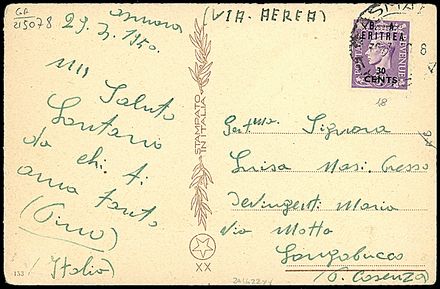 GA
215078
Asmara
29.3.1950.
(VIA-AEREA)
un Saluto
Lontano
da chi ti
ama tanto
(Pino)
Italia)
153
STAMPATO
IN ITALIA
XX
ASMARA
B. A.
ERITREA
30
CENTS
POSTAGE REVENUE
18
Gent.ma Signora
Luisa Mari. Grosso
Devingenti Maria
Via Motta
Longobucco
(p. Cosenza)